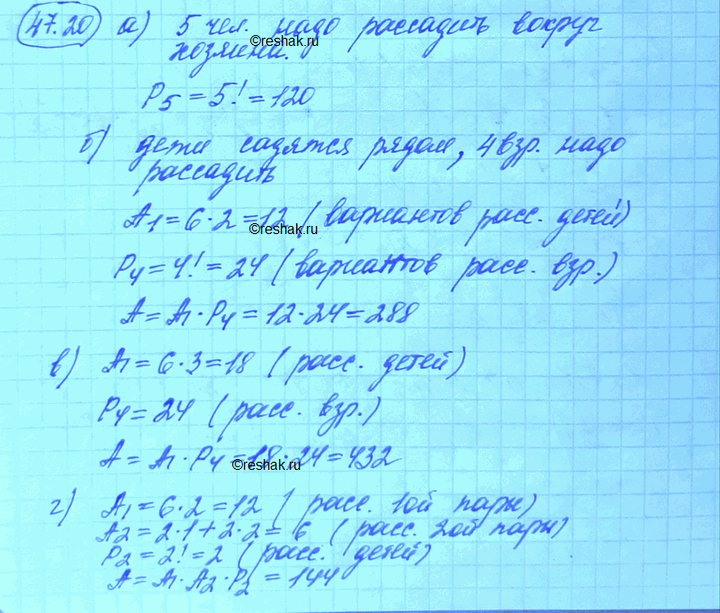 47.20 а) 5 чел. надо рассадить вокруг
хозяина.
©reshak.ru
P5 = 5! = 120
б) дети садятся рядом, 4 взр. надо
рассадить
A1 = 6·2 = 12 (вариантов расс. детей)
©reshak.ru
P4 = 4! = 24 (вариантов расс. взр.)
A = A1·P4 = 12·24 = 288
в) A1 = 6·3 = 18 (расс. детей)
P4 = 24 (расс. взр.)
A = A1·P4 = 18·24 = 432
©reshak.ru
г) A1 = 6·2 = 12 (расс. 1ой пары)
A2 = 2·1 + 2·2 = 6 (расс. 2ой пары)
P2 = 2! = 2 (расс. детей)
A = A1·A2·P2 = 144